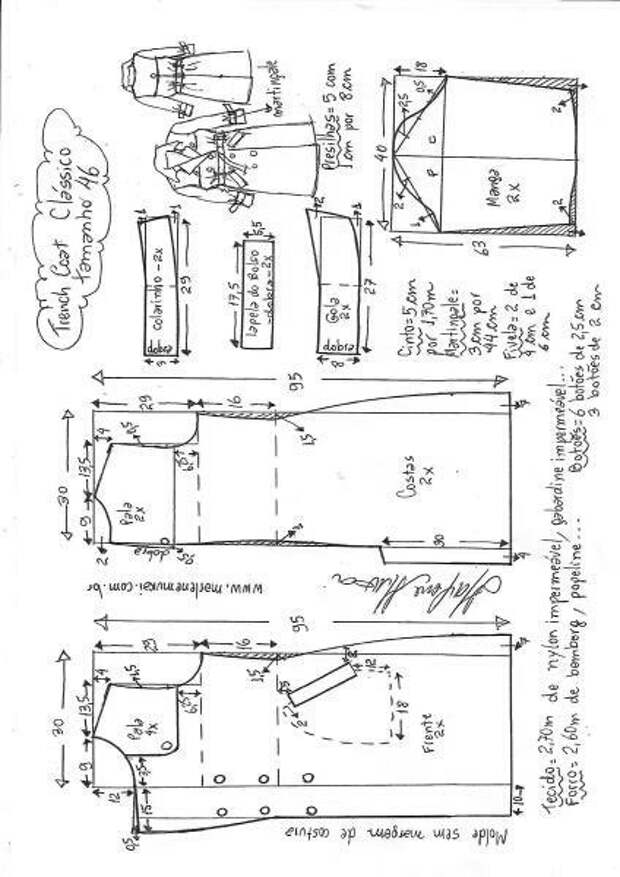 Trench Coat Clássico
tamanho 46
martingale
Presilhas = 5 com
1 cm por 8 cm
18
0,5
2,5
1
40
C
P
2
1
2
2
Manga
2x
63
1
Colarinho - 2x
dobra
29
5,5
17,5
Lapela do Bolso
- dobra - 2x
2
1
Gola
2x
dobra
27
8
Cinto = 5 cm
por 1,70m
Martingale =
3 cm por
44 cm
Fivela = 2 de
4 cm e 1 de
6 cm
95
29
16
4
30
13,5
9
2
Pala
2x
dobra
1,5
Costas
2x
30
www.marlenemukai.com.br
95
29
16
4
30
13,5
9
12
Pala
4x
3,5
1,5
15
0,5
12
18
2
Frente
2x
10
Molde sem margem de costura
Tecido = 2,70m de nylon impermeável, gabardine impermeável...
Forro = 2,60m de bemberg, popeline...
Botões = 6 botões de 2,5 cm
3 botões de 2 cm